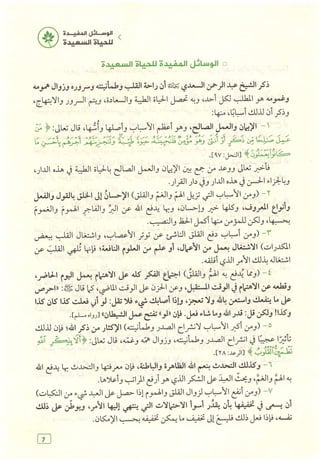 الوسائل المفيدة
للحياة السعيدة
الوسائل المفيدة للحياة السعيدة
ذكر الشيخ عبد الرحمن السعدي أن راحة القلب وطمأنينته وسروره وزوال همومه
وغمومه هو المطلب لكل أحد، وبه تحصل الحياة الطيبة والسعادة، ويتم السرور والابتهاج،
وذكر أن لذلك أسبابًا، منها:
١- الإيمان والعمل الصالح، وهو أعظم الأسباب وأصلها وأسُّها، قال تعالى: ﴿مَنْ
عَمِلَ صَالِحًا مِّن ذَكَرٍ أَوْ أُنثَىٰ وَهُوَ مُؤْمِنٌ فَلَنُحْيِيَنَّهُ حَيَاةً طَيِّبَةً وَلَنَجْزِيَنَّهُمْ أَجْرَهُم بِأَحْسَنِ مَا
كَانُوا يَعْمَلُونَ﴾ [النحل: ٩٧].
فأخبر تعالى ووعد من جمع بين الإيمان والعمل الصالح بالحياة الطيبة في هذه الدار
وبالجزاء الحسن في هذه الدار وفي دار القرار.
٢- (ومن الأسباب التي تزيل الهم والغم والقلق) الإحسان إلى الخلق بالقول والفعل
وأنواع المعروف، وكلها خير وإحسان، وبها يدفع الله عن البر والفاجر الهموم والغموم
بحسبها، ولكن للمؤمن منها أكمل الحظ والنصيب.
٣- (ومن أسباب دفع القلق الناشئ عن توتر الأعصاب، واشتغال القلب ببعض
المكدرات) الاشتغال بعمل من الأعمال، أو علم من العلوم النافعة؛ فإنها تُلهي القلب عن
اشتغاله بذلك الأمر الذي أقلقه.
٤- (ومما يُدفع به الهم والقلق) اجتماع الفكر كله على الاهتمام بعمل اليوم الحاضر،
وقطعه عن الاهتمام في الوقت المستقبل، وعن الحزن على الوقت الماضي، كما قال ﷺ: «احرص
على ما ينفعك واستعن بالله ولا تعجز، وإذا أصابك شيء فلا تقل: لو أني فعلت كذا كان كذا
وكذا، ولكن قل: قدر الله وما شاء فعل، فإن «لو» تفتح عمل الشيطان» [رواه مسلم].
٥- (ومن أكبر الأسباب لانشراح الصدر وطمأنينته) الإكثار من ذكر الله؛ فإن لذلك
تأثيرًا عجيبًا في انشراح الصدر وطمأنينته، وزوال همه وغمه، قال تعالى: ﴿أَلَا بِذِكْرِ اللَّهِ
تَطْمَئِنُّ الْقُلُوبُ﴾ [الرعد: ٢٨].
٦- وكذلك التحدث بنعم الله الظاهرة والباطنة، فإن معرفتها والتحدث بها يدفع الله
به الهم والغم، ويحث العبد على الشكر الذي هو أرفع المراتب وأعلاها.
٧- (ومن أنفع الأسباب لزوال القلق والهموم إذا حصل على العبد شيء من النكبات)
أن يسعى في تخفيفها بأن يقدر أسوأ الاحتمالات التي ينتهي إليها الأمر، ويوطن على ذلك
نفسه، فإذا فعل ذلك فليسع إلى تخفيف ما يمكن تخفيفه بحسب الإمكان.
7